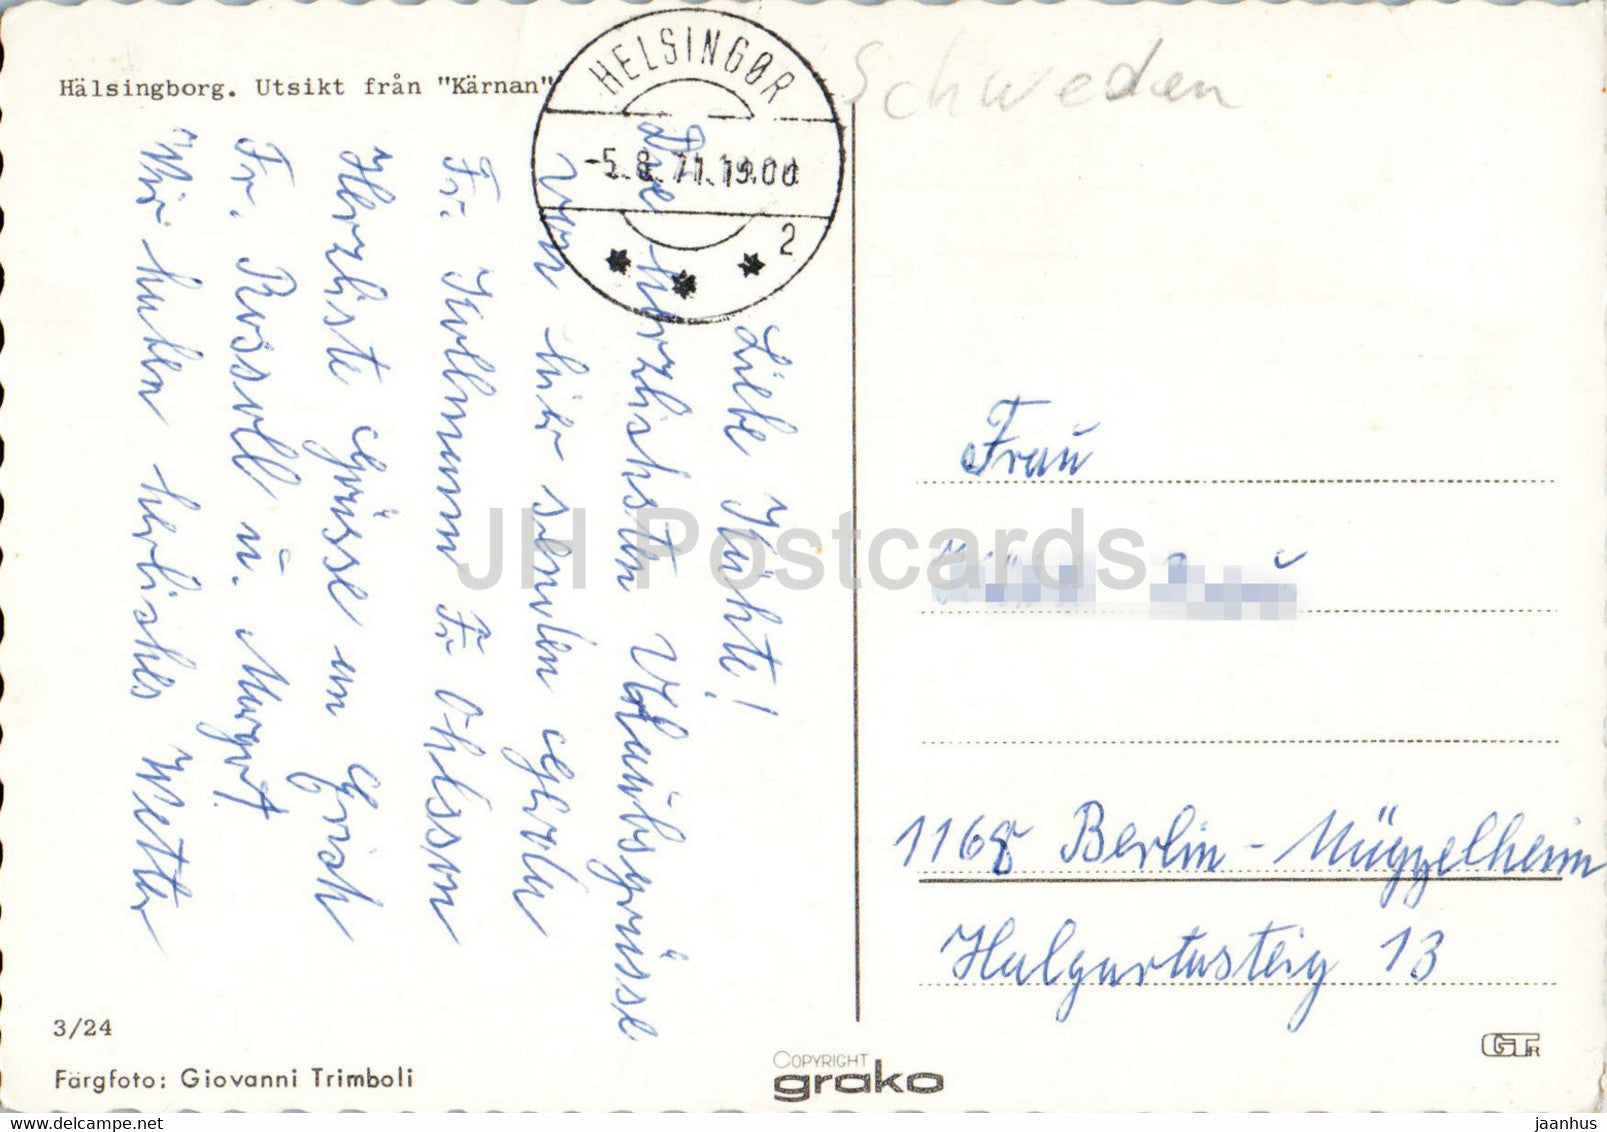 Hälsingborg. Utsikt från "Kärnan"
HELSINGØR
-5.8.71.19.00
2
Schweden
Liebe Käthe!
Die herzlichsten Urlaubsgrüsse
von hier senden
Fr. Kollmann Fr Ohlsson
Herzliste Grüsse an
Fr. Rossoll u. Margot
Wir haben herliches Wetter
Frau
1168 Berlin - Müggelheim
Halgartersteig 13
3/24
Färgfoto: Giovanni Trimboli
COPYRIGHT
grako
GTR
JH Postcards
www.delcampe.net
jaanhus